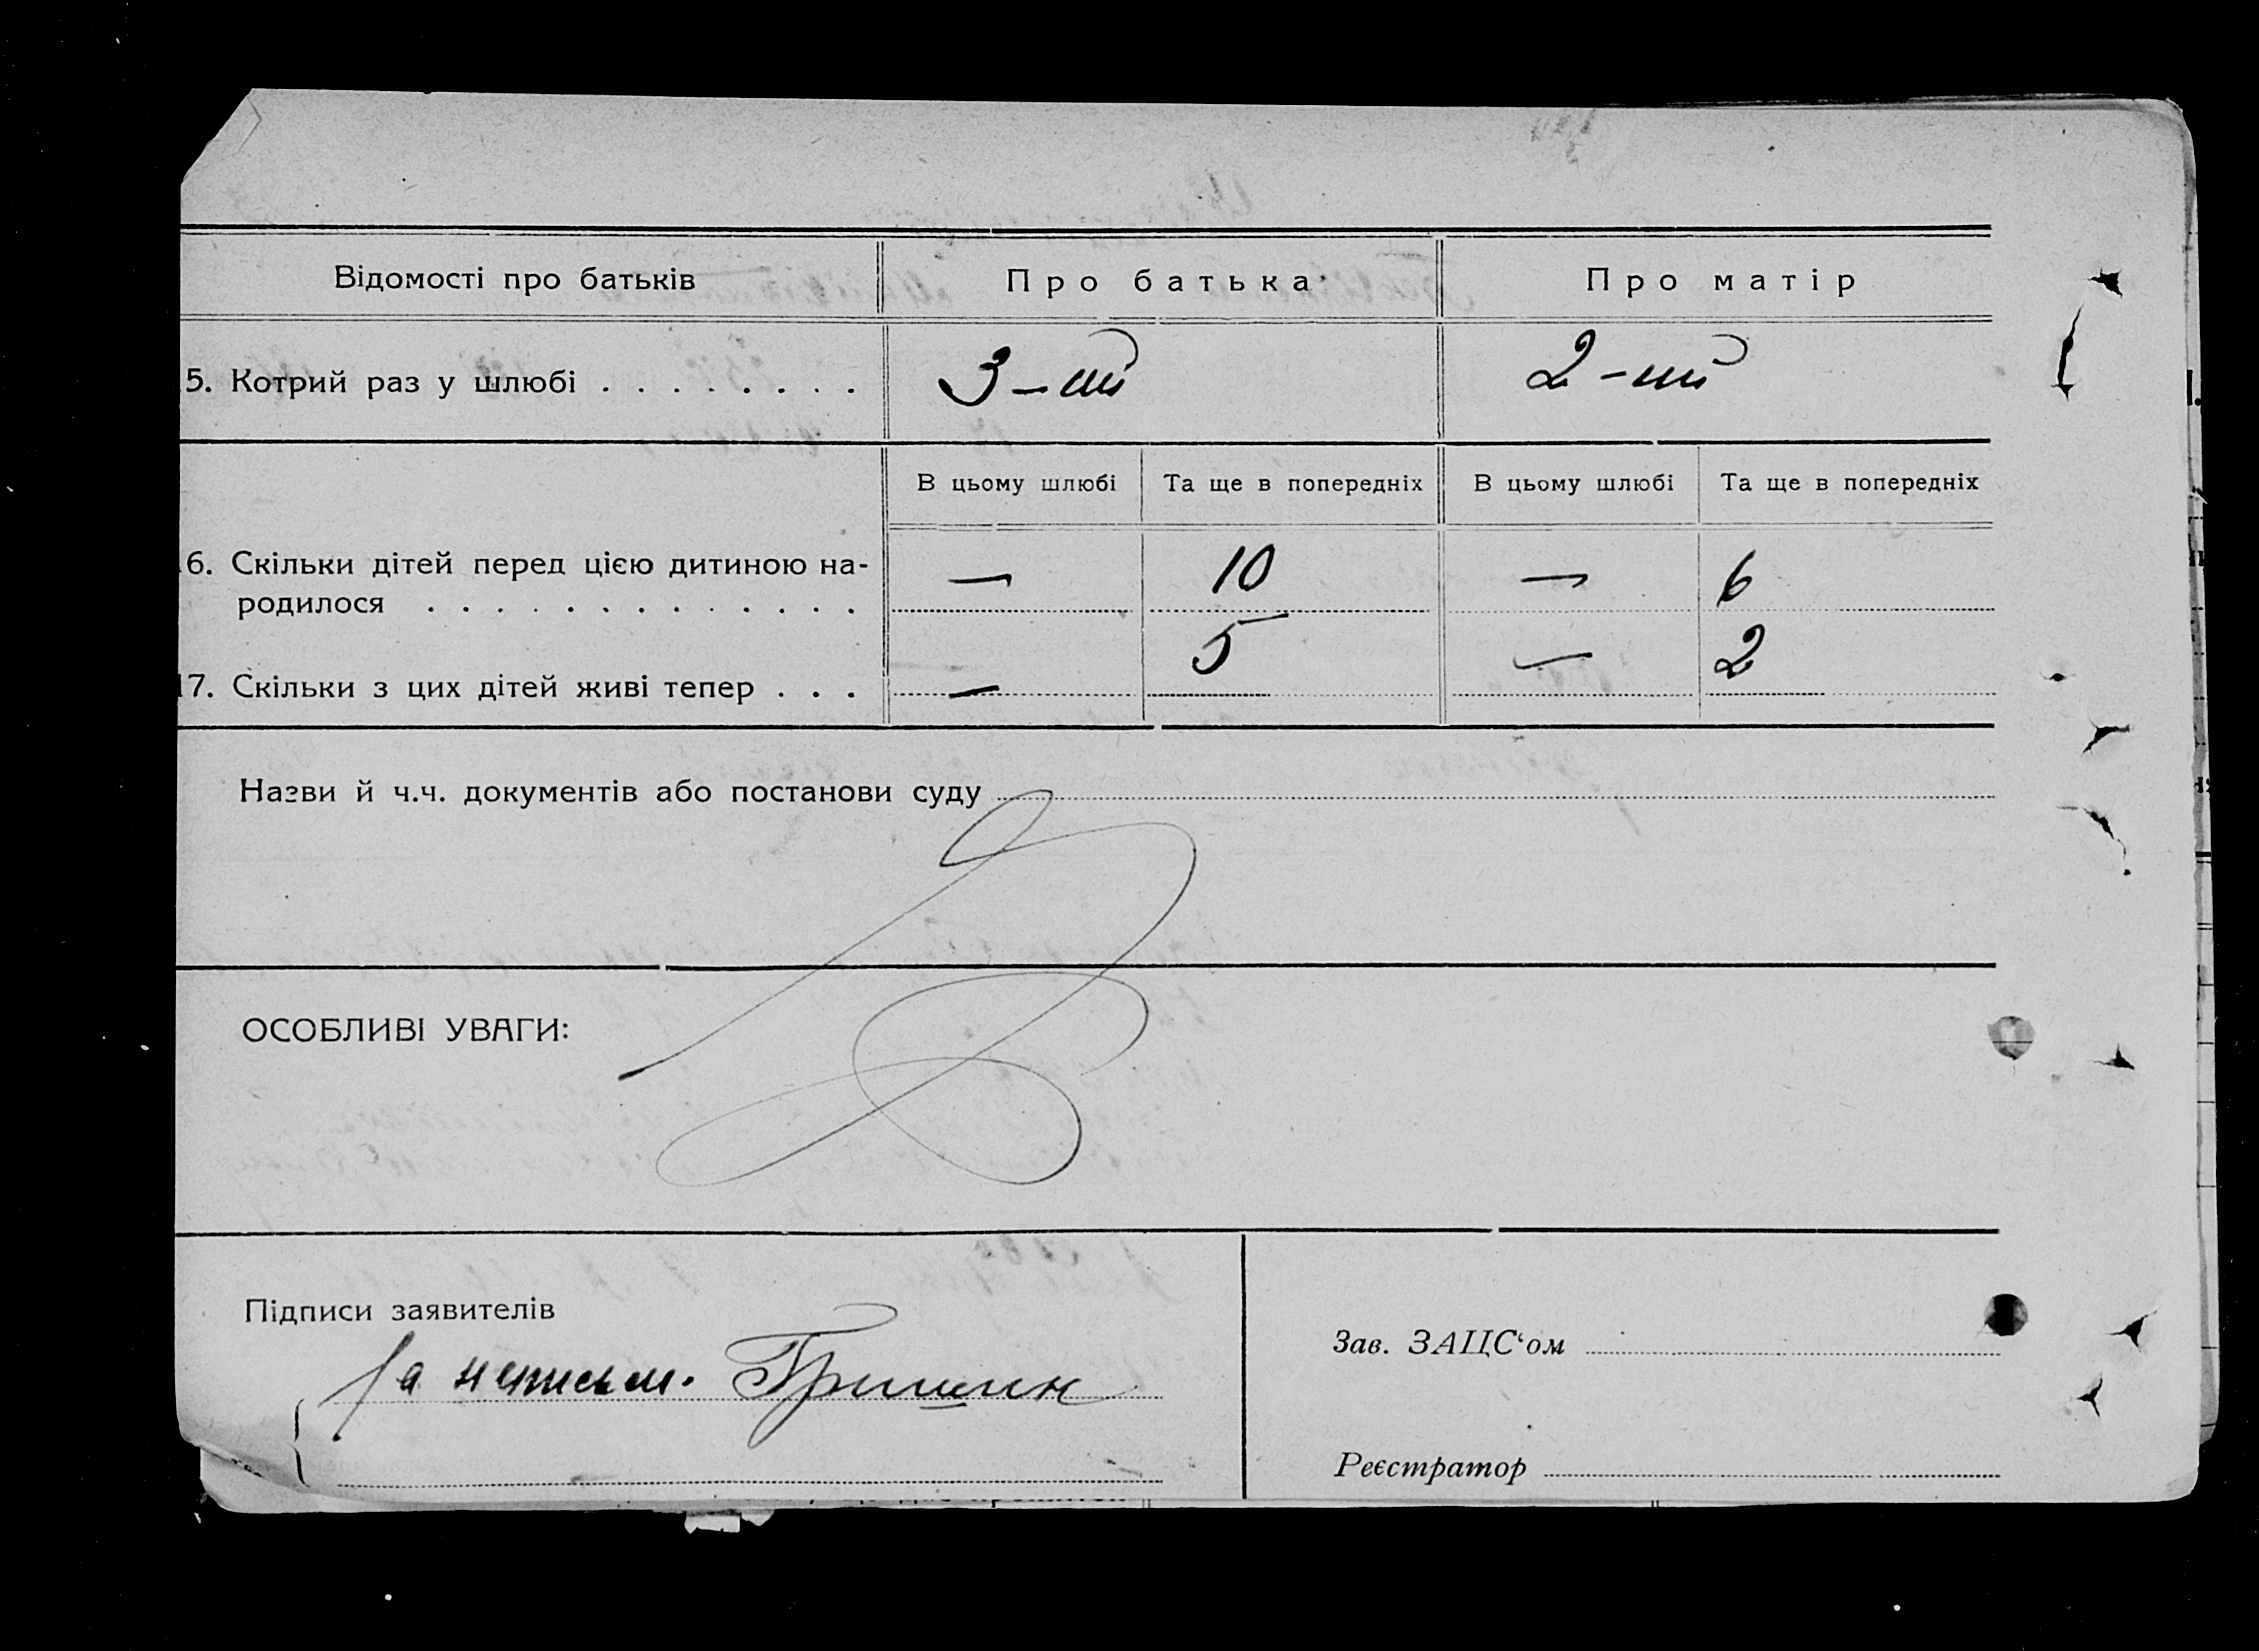 Відомості про батьків Про батька Про матір
5. Котрий раз у шлюбі . . . . . . . . 3-ий 2-ий
В цьому шлюбі Та ще в попередніх В цьому шлюбі Та ще в попередніх
6. Скільки дітей перед цією дитиною на-
родилося . . . . . . . . . . . . . — 10 — 6
17. Скільки з цих дітей живі тепер . . . — 5 — 2
Назви й ч.ч. документів або постанови суду
ОСОБЛИВІ УВАГИ:
Підписи заявителів
За неписьм. Гришин
Зав. ЗАЦС‘ом
Реєстратор